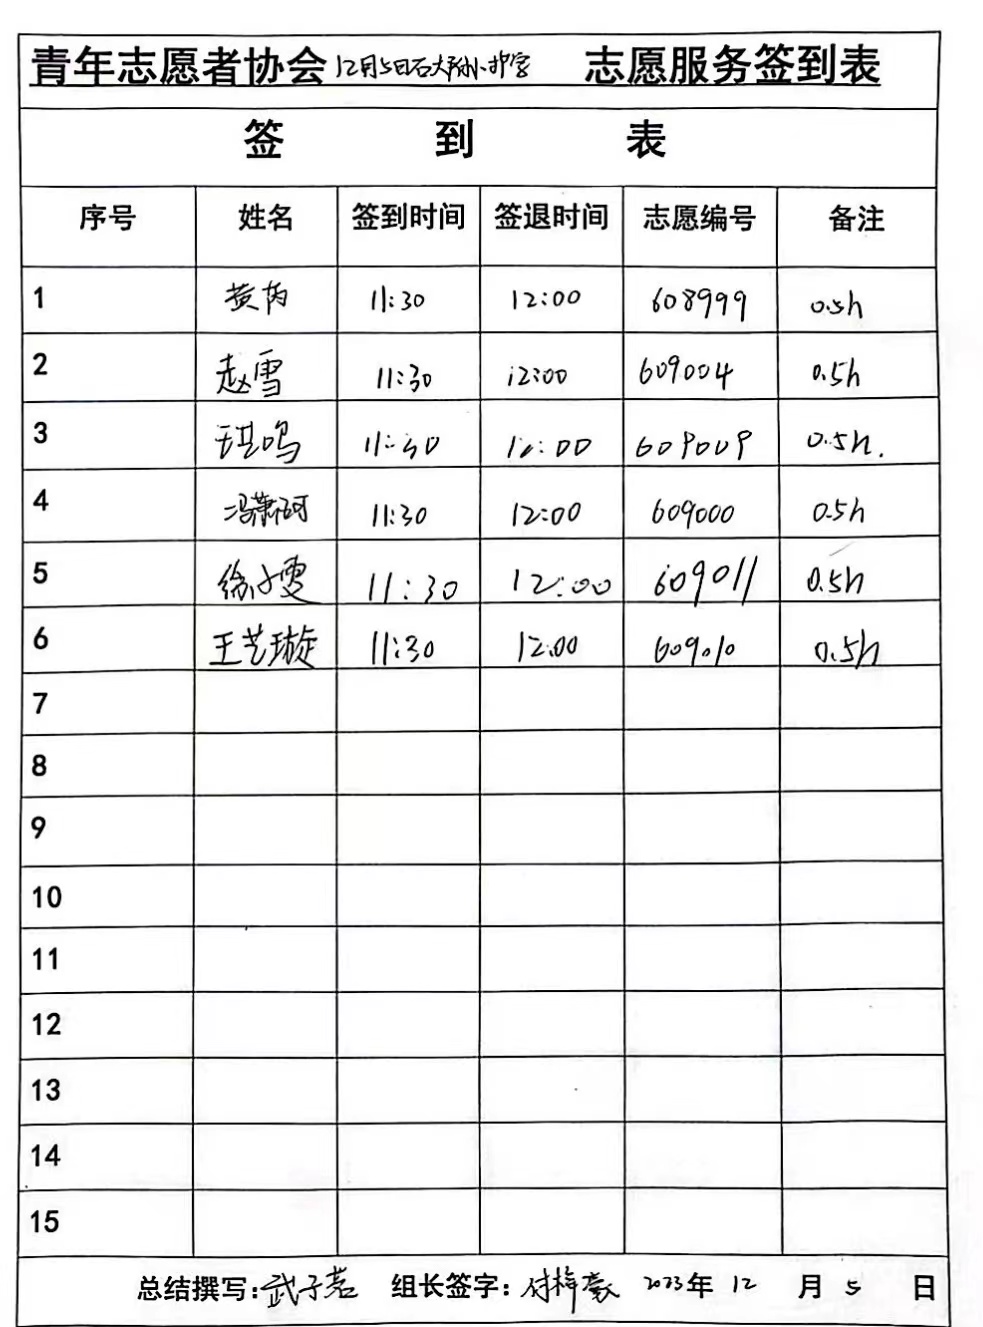 青年志愿者协会12月5日石大附小护学 志愿服务签到表
签 到 表
序号 姓名 签到时间 签退时间 志愿编号 备注
1 黄芮 11:30 12:00 608999 0.5h
2 赵雪 11:30 12:00 609004 0.5h
3 琪鸣 11:30 12:00 609009 0.5h.
4 冯萧珂 11:30 12:00 609000 0.5h
5 徐小雯 11:30 12:00 609011 0.5h
6 王艺璇 11:30 12:00 609010 0.5h
7
8
9
10
11
12
13
14
15
总结撰写:武子若 组长签字:付梓豪 2023年 12 月 5 日